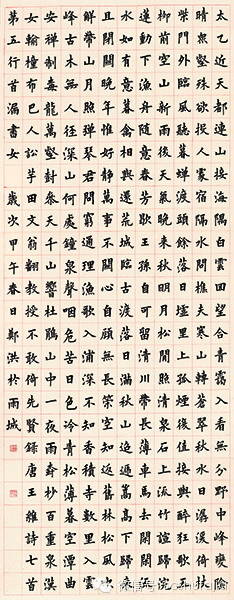 太乙近天都連山接海隅白雲回望合青靄入看無分野中峰變陰
晴眾壑殊欲投人處宿隔水問樵夫寒山轉蒼翠秋水日潺湲倚杖
柴門外臨風聽暮蟬渡頭餘落日墟里上孤煙復值接輿醉狂歌五
柳前空山新雨後天氣晚來秋明月松間照清泉石上流竹喧歸浣
蓮動下漁舟隨意春芳歇王孫自可留清川帶長薄車馬去閑閑流
水如有意暮禽相與還荒城臨古渡落日滿秋山迢遞嵩高下歸來
且閉關晚年惟好靜萬事不關心自顧無長策空知返舊林松風吹
解帶山月照彈琴君問窮通理漁歌入浦深不知香積寺數里入雲
峰古木無人徑深山何處鐘泉聲咽危石日色冷青松薄暮空潭曲
安禪制毒龍萬壑樹參天千山響杜鵑山中一夜雨樹杪百重泉漢
女輸橦布巴人訟芋田文翁翻教授不敢倚先賢錄唐王維詩七首
第五行首漏書女 歲次甲午春日鄭洪於雨城